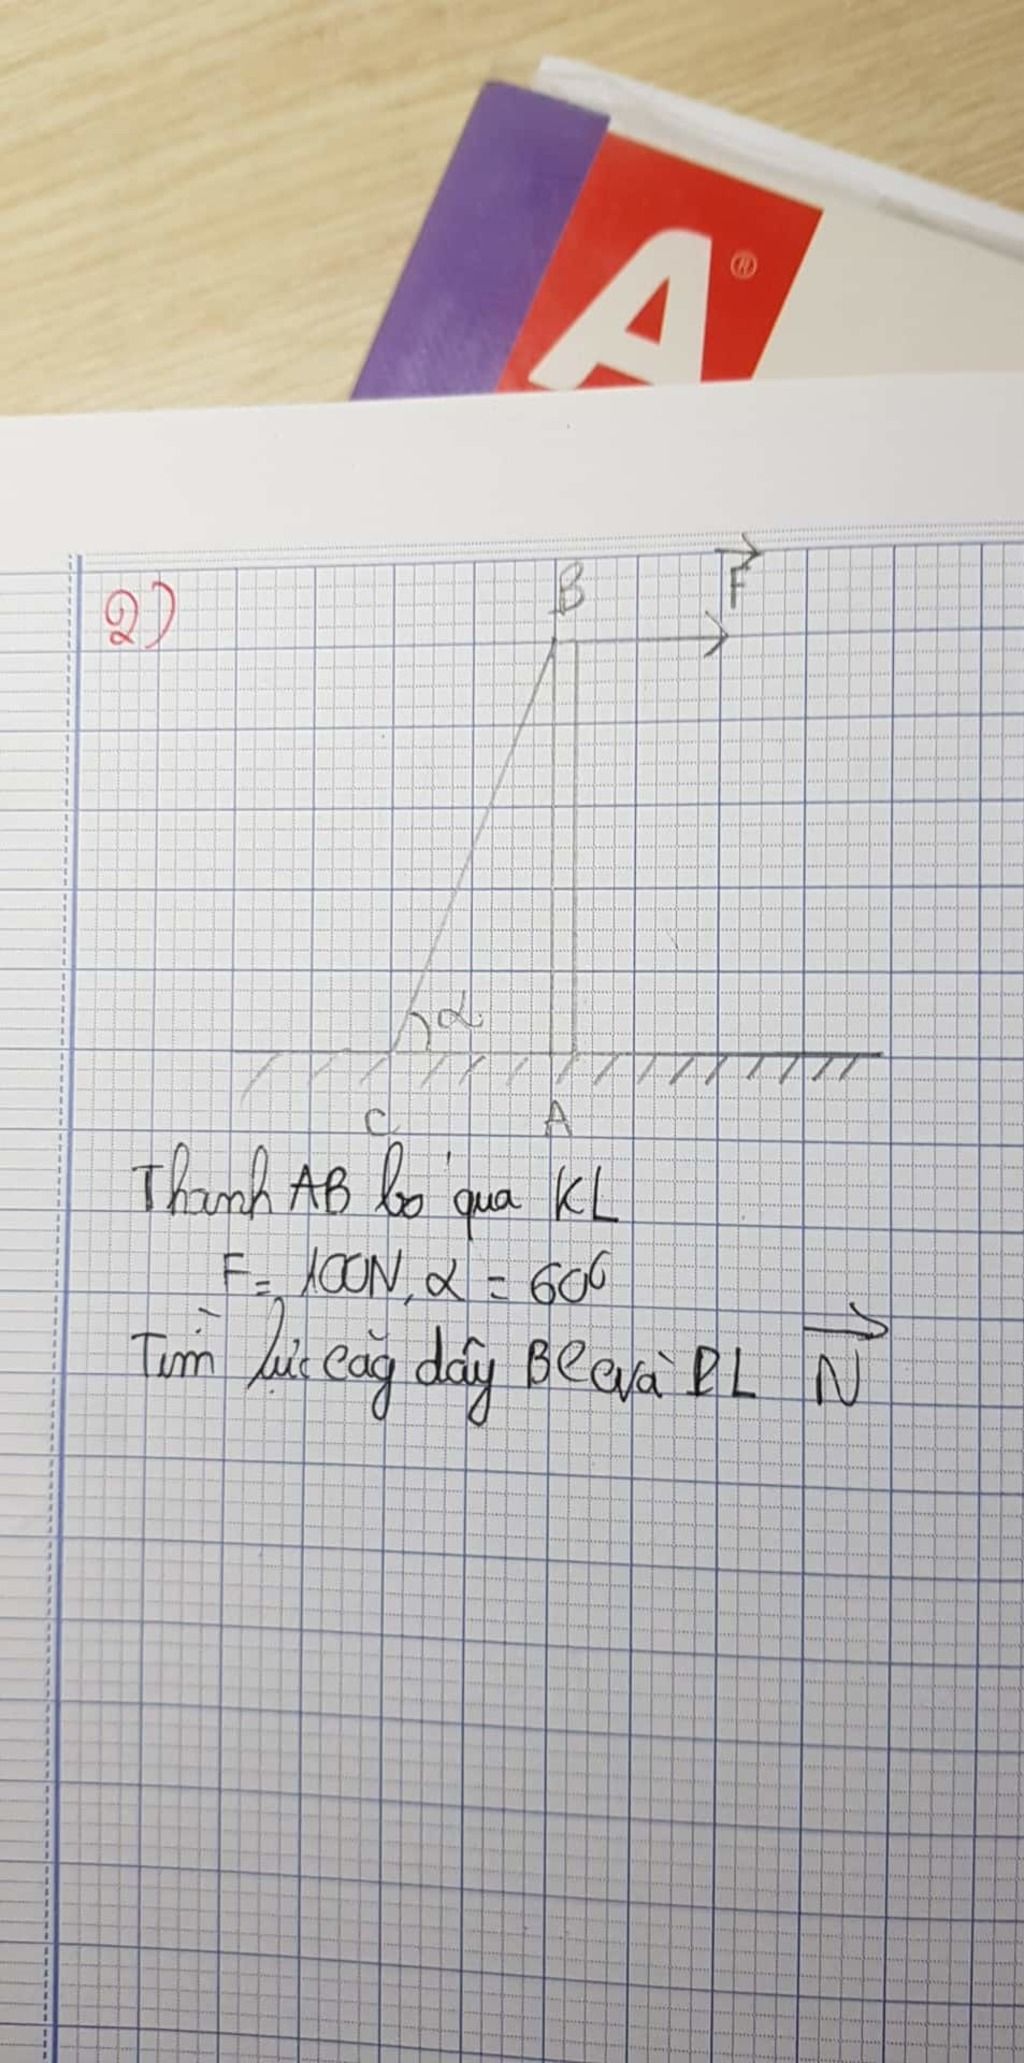 A®
2)
B
F
α
C
A
Thanh AB bỏ qua KL
F = 100N, α = 60⁰
Tìm lực căg dây BC và PL N